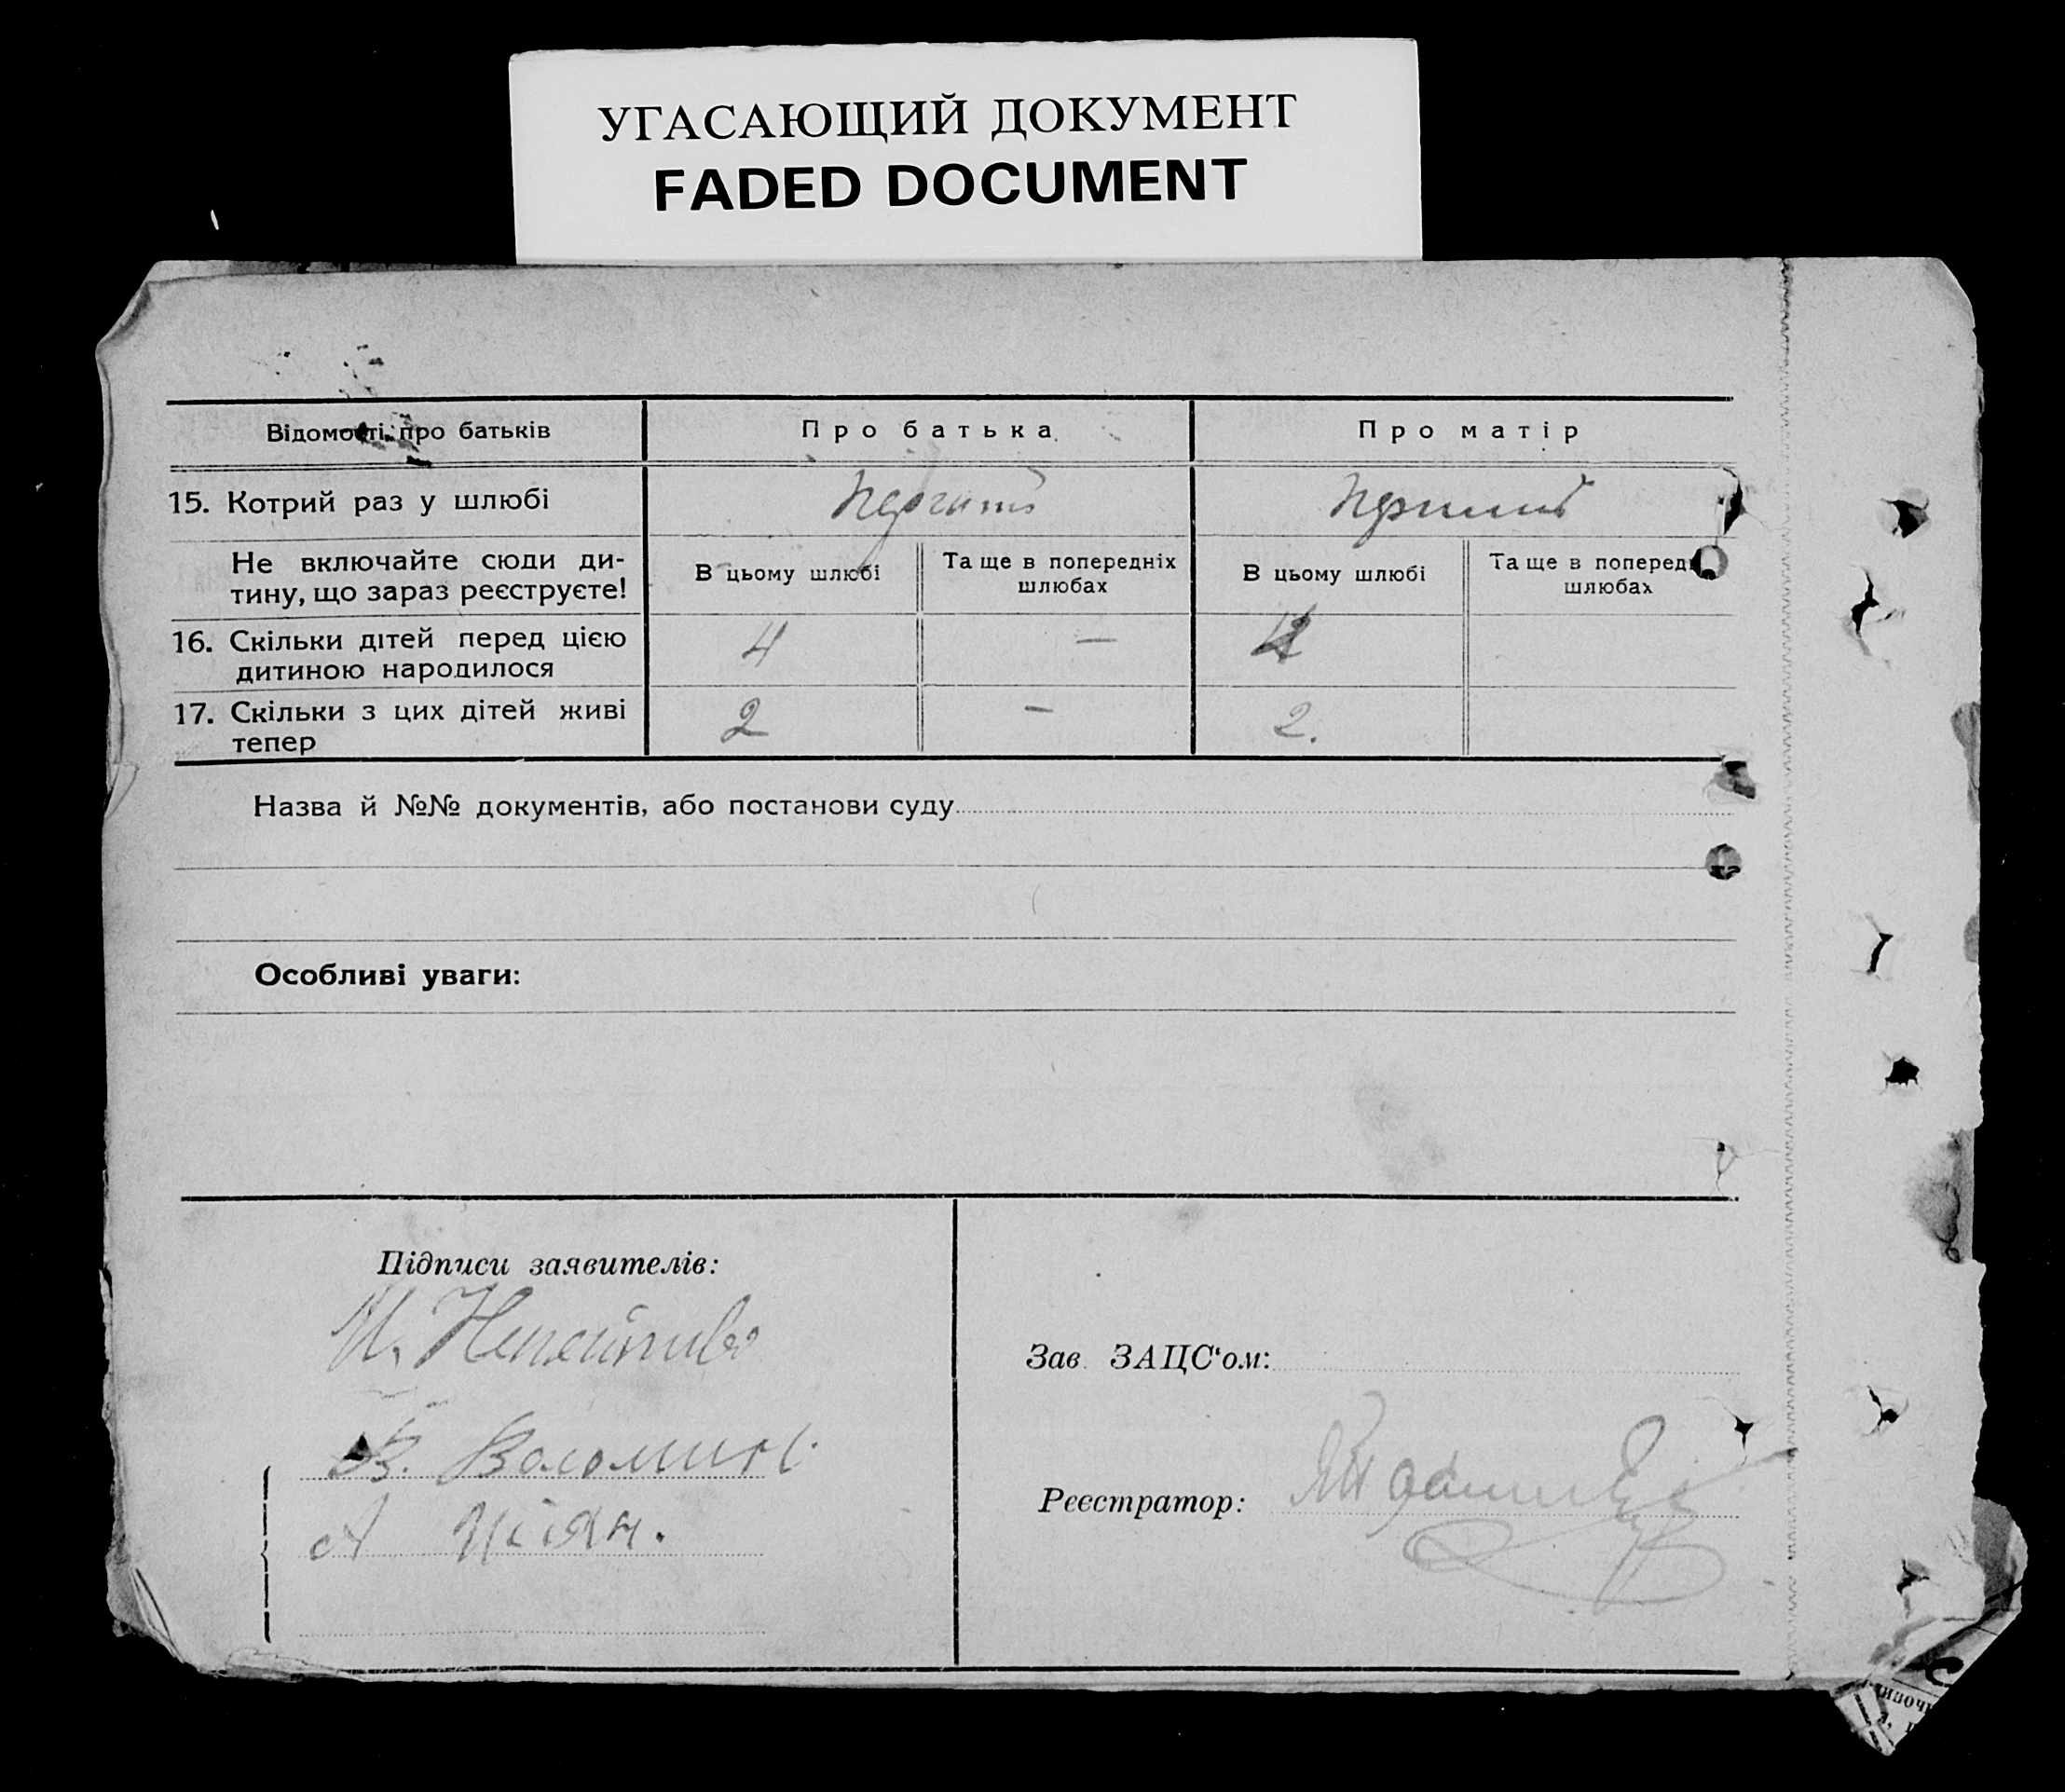 УГАСАЮЩИЙ ДОКУМЕНТ
FADED DOCUMENT
Відомості про батьків
Про батька
Про матір
15. Котрий раз у шлюбі
Не включайте сюди ди-
тину, що зараз реєструєте!
В цьому шлюбі
Та ще в попередніх
шлюбах
В цьому шлюбі
Та ще в поперед
шлюбах
16. Скільки дітей перед цією
дитиною народилося
4
—
4
17. Скільки з цих дітей живі
тепер
2
—
2.
Назва й №№ документів, або постанови суду
Особливі уваги:
Підписи заявителів:
В.
А
Зав. ЗАЦС‘ом:
Реєстратор: